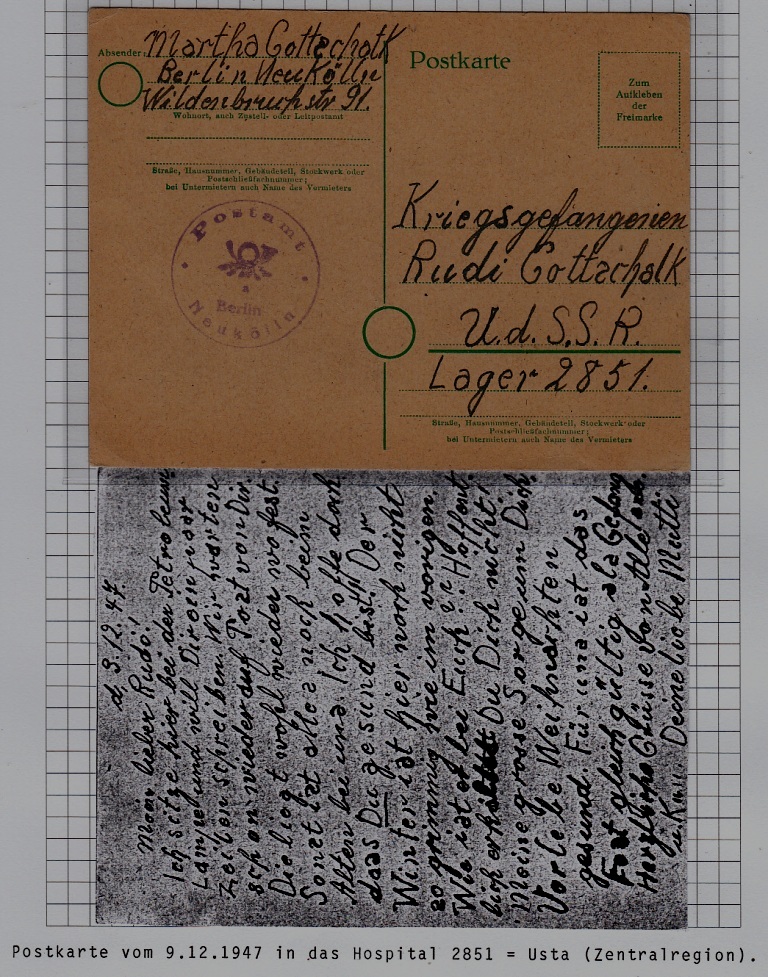 Absender:
Martha Gottschalk
Berlin Neukölln
Wildenbruchstr 91.
Wohnort, auch Zustell- oder Leitpostamt
Straße, Hausnummer, Gebäudeteil, Stockwerk oder
Postschließfachnummer;
bei Untermietern auch Name des Vermieters
Postamt
a
Berlin
Neukölln
Postkarte
Zum
Aufkleben
der
Freimarke
Kriegsgefangenen
Rudi Gottschalk
U.d.S.S.R.
Lager 2851.
Straße, Hausnummer, Gebäudeteil, Stockwerk oder
Postschließfachnummer;
bei Untermietern auch Name des Vermieters
d. 9.12.47.
Mein lieber Rudi,
Ich sitze hier bei der Petroleum
Lampe und will Dir ein paar
Zeilen schreiben. Wir warten
schon wieder auf Post von Dir.
Die liegt wohl wieder wo fest.
Sonst ist alles noch beim
Alten bei uns. Ich hoffe doch
dass Du gesund bist. Der
Winter ist hier noch nicht
so grimmig wie im vorigen.
Wie ist es bei Euch? Hoffent
lich erkältest Du Dich nicht.
Meine grosse Sorge um Dich
Vorlebe Weihnachten
gesund. Für uns ist das
Fest gleichgültig als
Herzliche Grüsse von Allen
Deine liebe Mutti
Postkarte vom 9.12.1947 in das Hospital 2851 = Usta (Zentralregion).